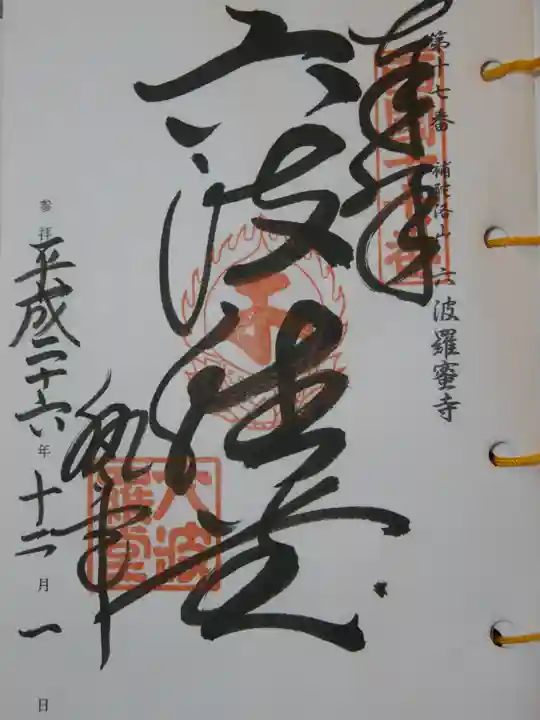 第十七番 補陀洛山 六波羅蜜寺
奉拝
六波佛堂
執事
参拝 平成二十六年 十二月 一日